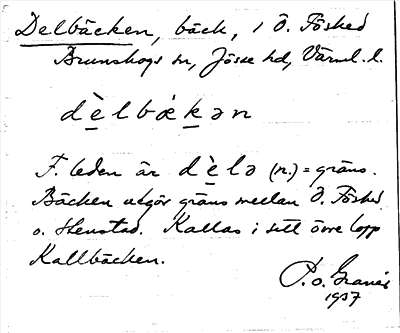 Delbäcken, bäck, i Ö. Fösked
Brunskogs sn, Jösse hd, Värml. l.
dèlbækən
F. leden är dèlə (n.) = gräns.
Bäcken utgör gräns mellan Ö. Fösked
o. Stenstad. Kallas i sitt övre lopp
Kallbäcken.
P. o.
1937